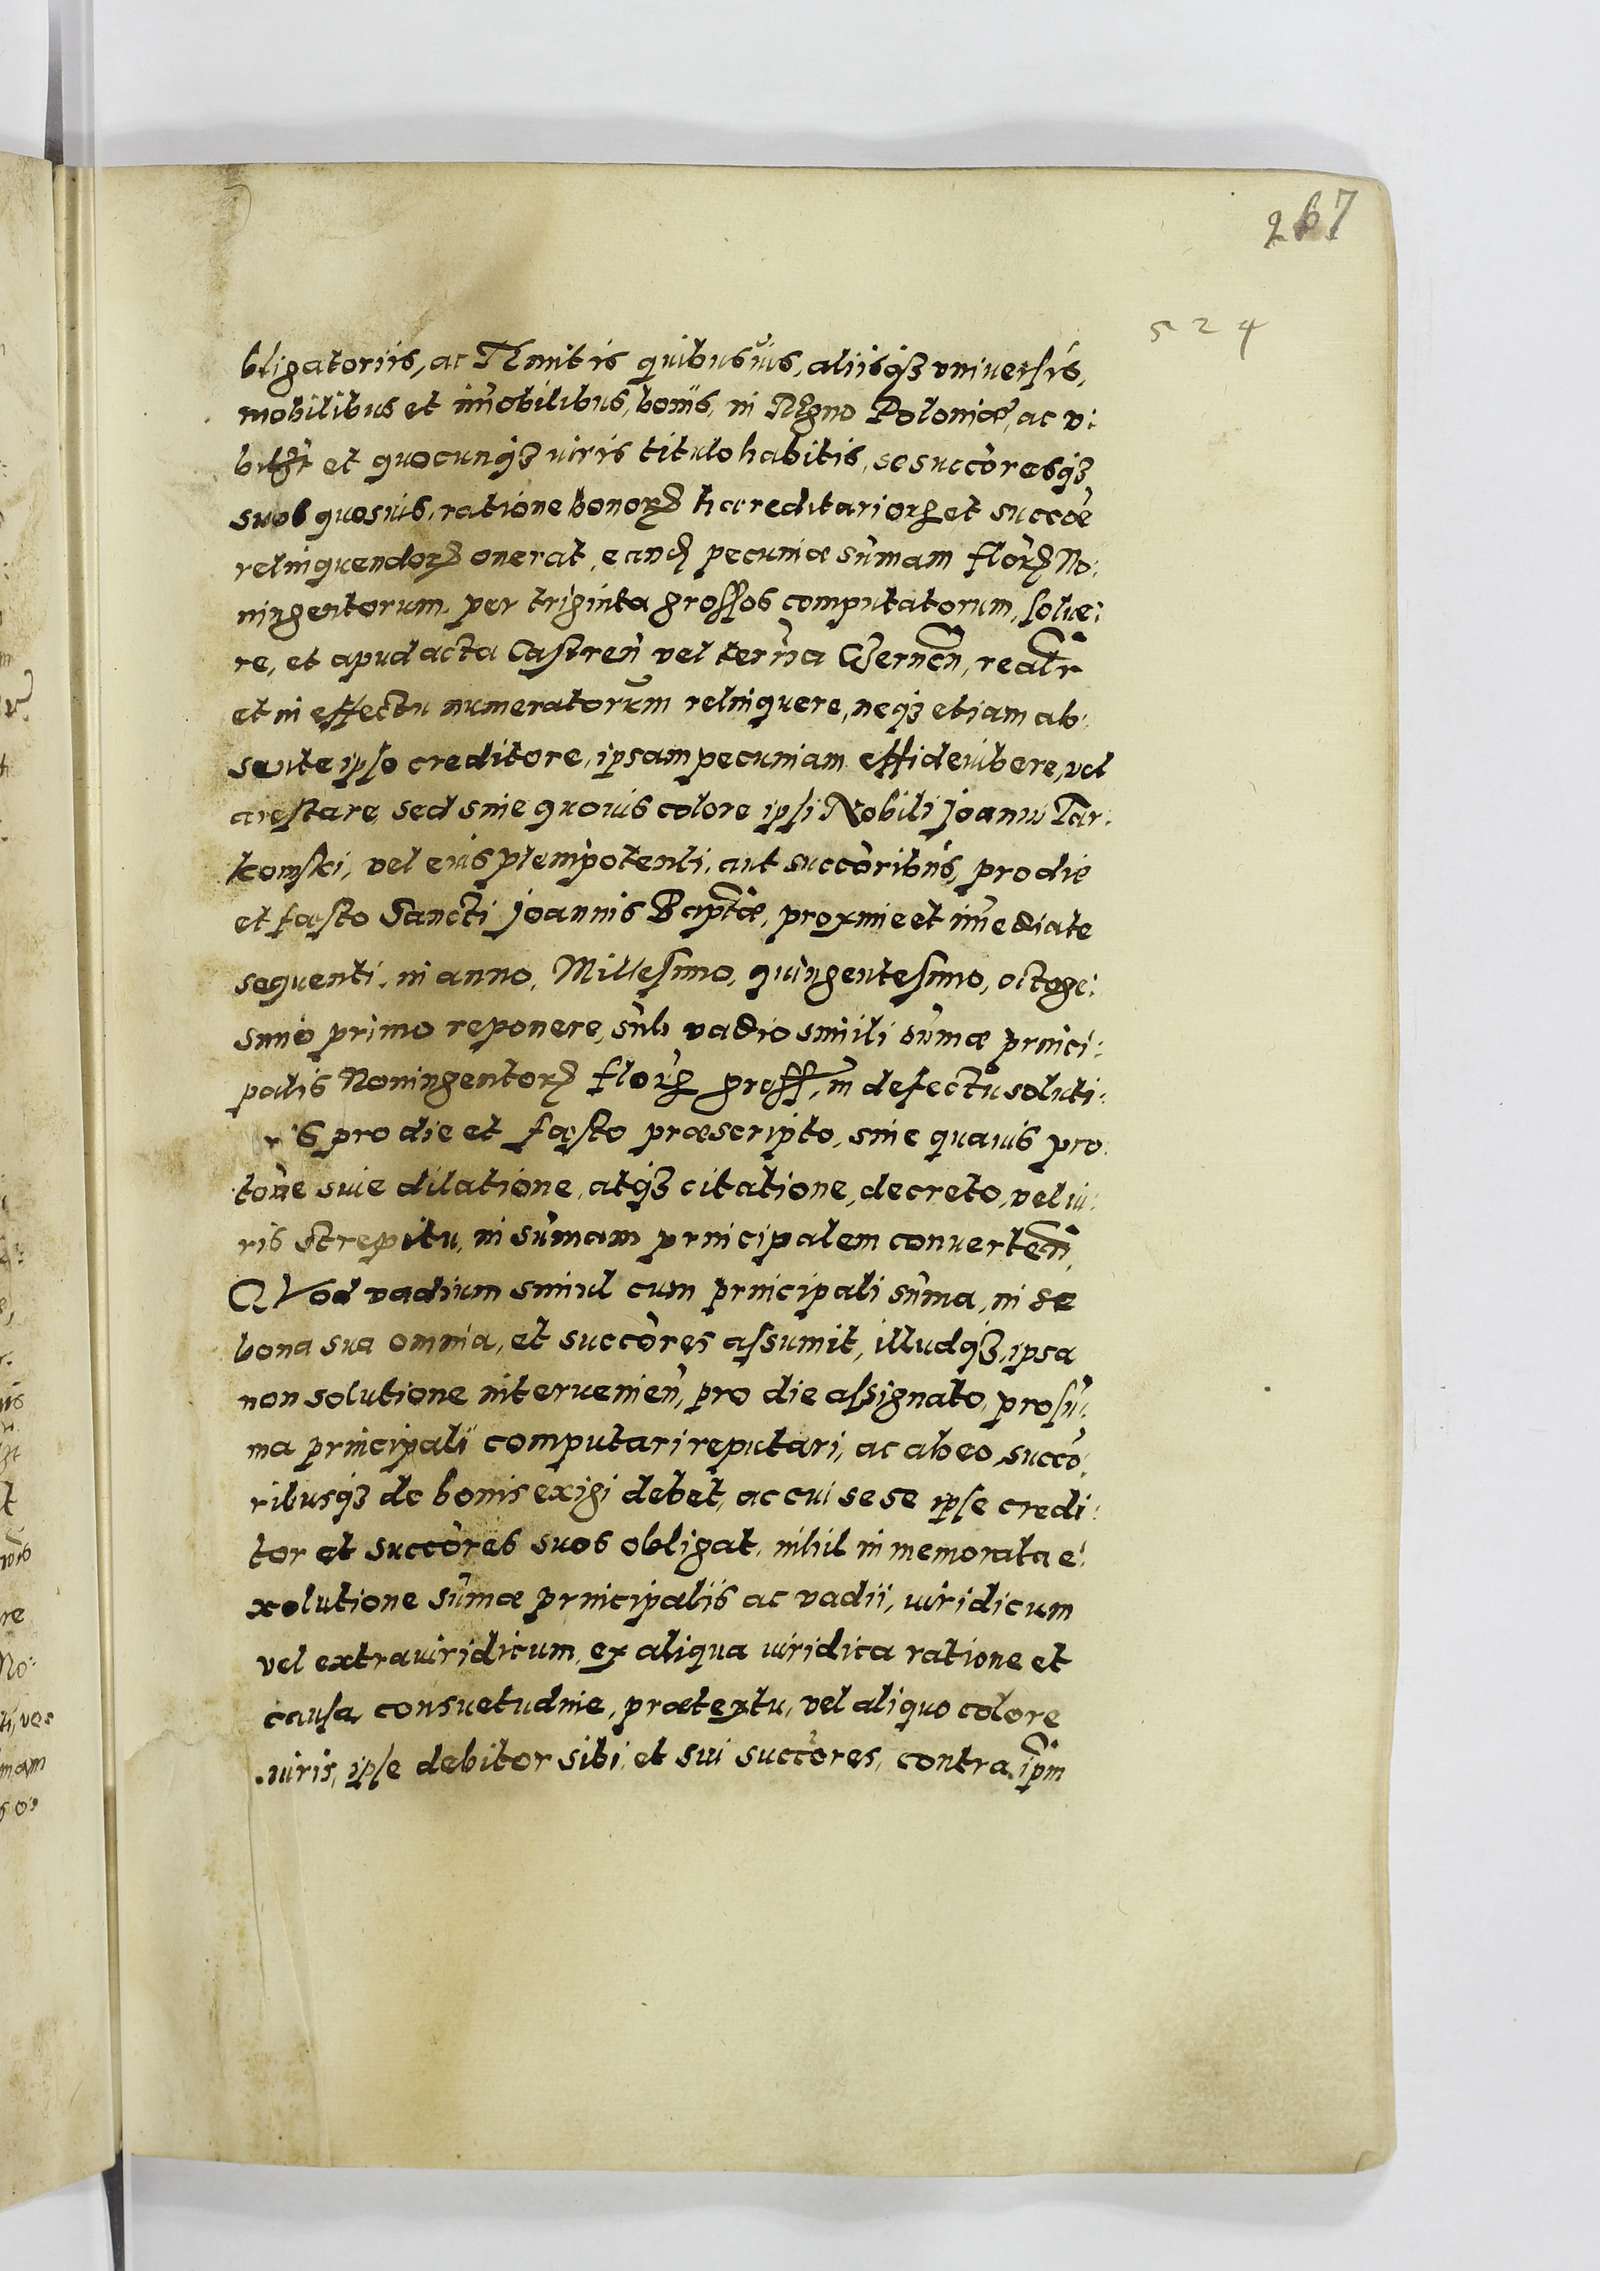 267
524
bligatoriis, ac Tlmitis quibusuis, aliisqꝫ vniuersis,
mobilibus et im̃obilibus, bonis, in Regno Poloniæ, ac v:
et quocunqꝫ iuris titulo habitis, se succ̃oresqꝫ
suos quosuis, ratione bonorꝝ hæreditariorꝝ et succ̃e
relinquendorꝝ onerat, eandꝫ pecuniæ sum̃am flor̃ꝝ No:
ningentorum, per triginta grossos computatorum, solue:
re, et apud acta Castren̄ vel terr̃ia Gernen̄, realr̃
et in effectu numeratorum relinquere, neqꝫ etiam ab:
sente ipso creditore, ipsam pecuniam effideiubere, vel
arestare, sed sine quouis colore ipsi Nobili Joanni Tar:
komski, vel eius plenipotenti, aut succ̃oribus, pro die
et fæsto Sancti Joannis Bapt̃æ, proxime et im̃ediate
sequenti, in anno, Millesimo, quingentesimo, octoge:
simo primo reponere, sub vadio simili sum̃æ princi:
palis Noningentorꝝ flor̃ꝝ gross, in defectu soluti:
pro die et fæsto præscripto, sine quauis pro
suie dilatione, atqꝫ citatione, decreto, vel iu:
ris strepitu, in sum̃am principalem conuerten̄,
QVod vadium simul cum principali sum̃a, in se
bona sua omnia, et succ̃ores assumit, illudqꝫ, ipsa
non solutione interuenien̄, pro die assignato, pro sum̃:
ma principali computari reputari, ac ab eo, succ̃o:
ribusqꝫ de bonis exigi debet, ac cui sese ipse credi:
tor et succ̃ores suos obligat, nihil in memorata e:
xolutione sum̃æ principalis ac vadii, iuridicum
vel extraiuridicum, ex aliqua iuridica ratione et
causa, consuetudine, prætextu, vel aliquo colore
iuris, ipse debitor sibi, et sui succ̃ores, contra ip̃m